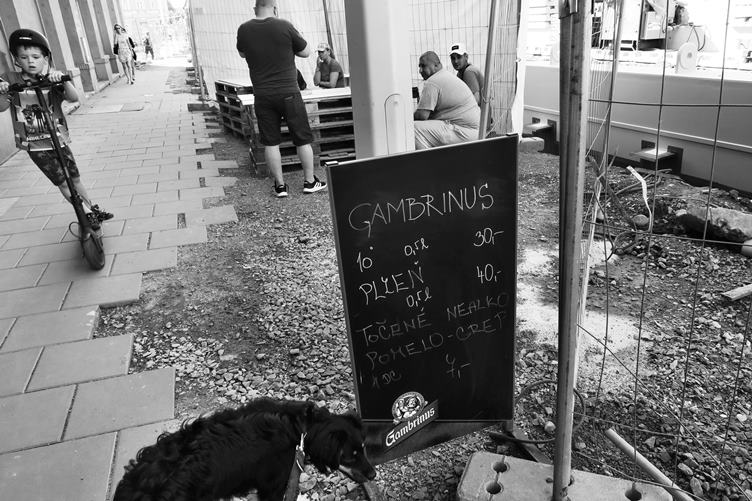 GAMBRINUS
10° 0,5l 30,-
PLZEŇ
0,5l 40,-
TOČENÉ NEALKO
POMELO-GREP
1DC 7,-
Gambrinus